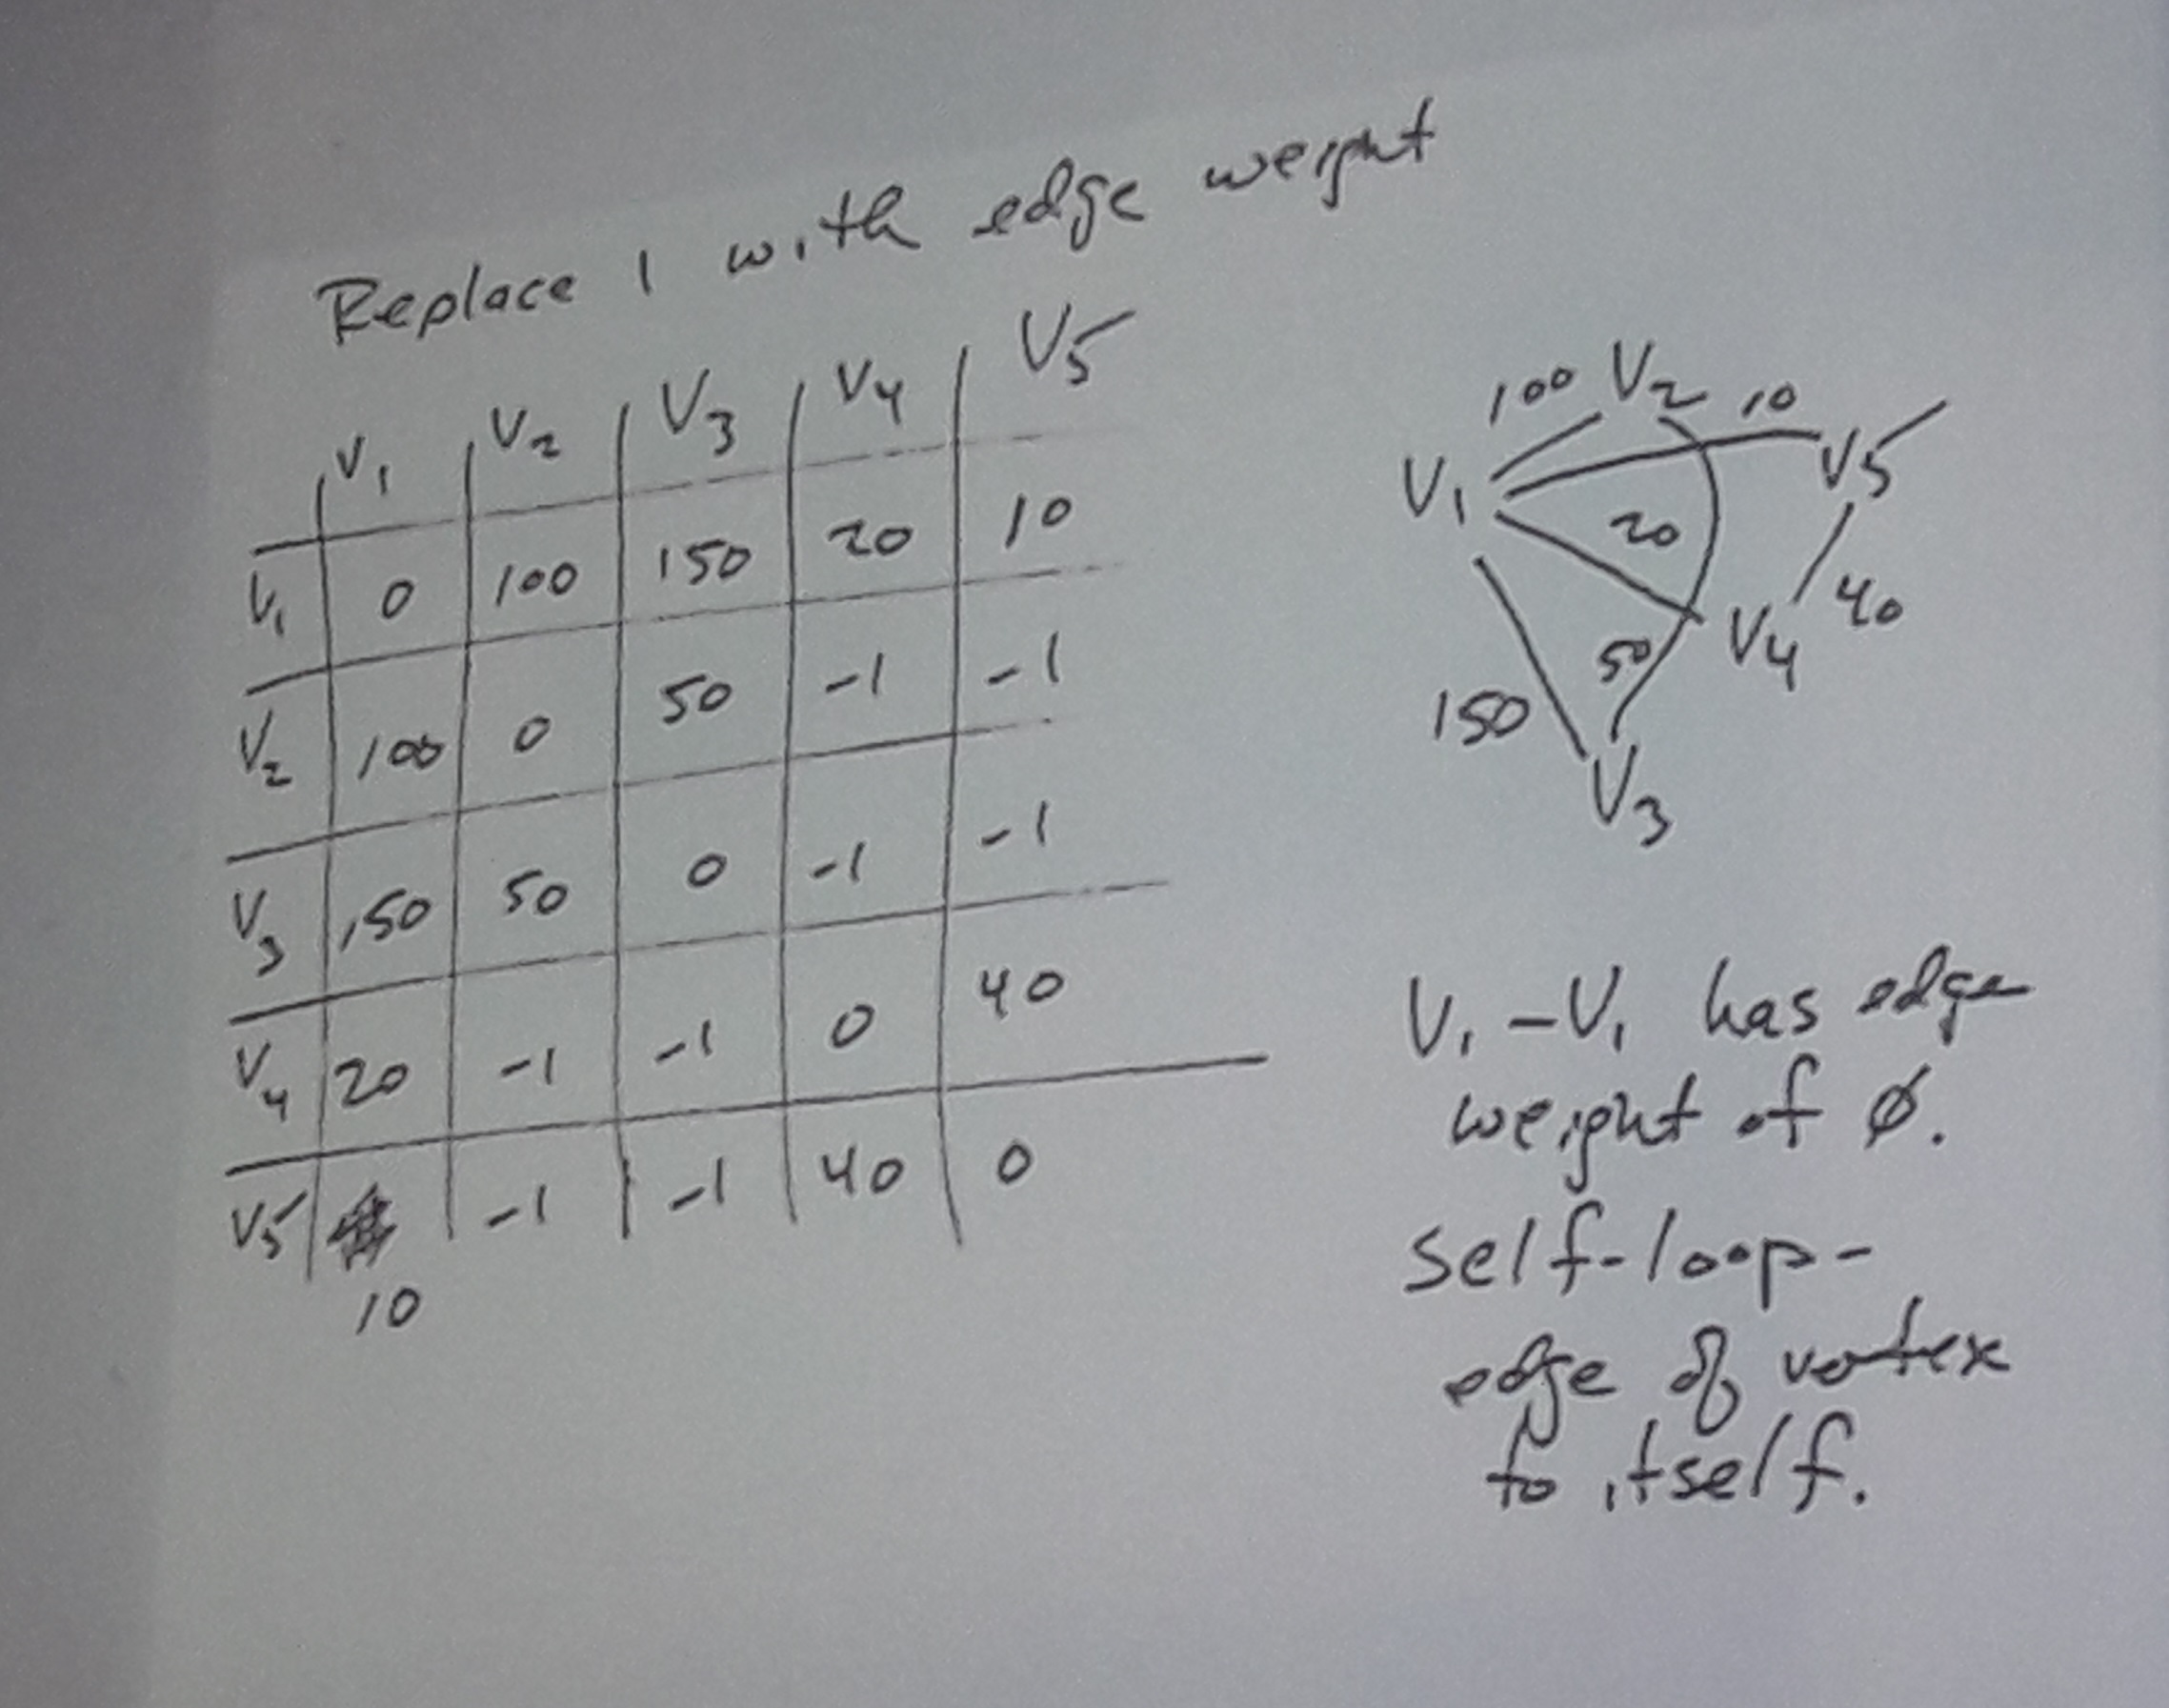 Replace 1 with edge weight
V1 V2 V3 V4 V5
V1 0 100 150 20 10
V2 100 0 50 -1 -1
V3 150 50 0 -1 -1
V4 20 -1 -1 0 40
V5 -1 -1 40 0
10
100 V2 10
V1 V5
20
V4 40
50
150
V3
V1 - V1 has edge
weight of Ø.
self-loop-
edge of vertex
to itself.